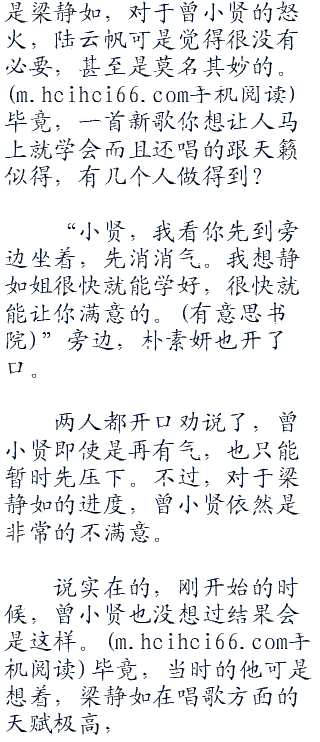 是梁静如，对于曾小贤的怒
火，陆云帆可是觉得很没有
必要，甚至是莫名其妙的。
(m.hcihci66.com手机阅读)
毕竟，一首新歌你想让人马
上就学会而且还唱的跟天籁
似得，有几个人做得到？
“小贤，我看你先到旁
边坐着，先消消气。我想静
如姐很快就能学好，很快就
能让你满意的。(有意思书
院)”旁边，朴素妍也开了
口。
两人都开口劝说了，曾
小贤即使是再有气，也只能
暂时先压下。不过，对于梁
静如的进度，曾小贤依然是
非常的不满意。
说实在的，刚开始的时
候，曾小贤也没想过结果会
是这样。(m.hcihci66.com手
机阅读)毕竟，当时的他可是
想着，梁静如在唱歌方面的
天赋极高，